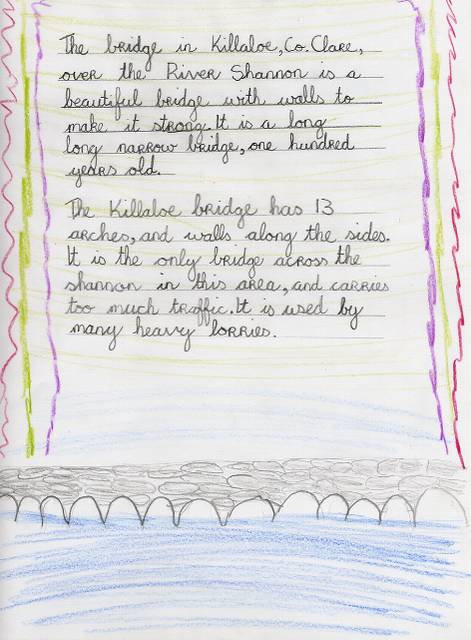 The bridge in Killaloe, Co. Clare,
over the River Shannon is a
beautiful bridge with walls to
make it strong. It is a long
long narrow bridge, one hundred
years old.
The Killaloe bridge has 13
arches, and walls along the sides.
It is the only bridge across the
shannon in this area, and carries
too much traffic. It is used by
many heavy lorries.